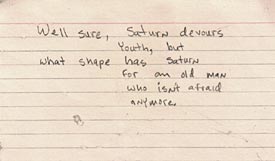 Well sure, Saturn devours
Youth, but
what shape has Saturn
for an old man
who isn't afraid
anymore.